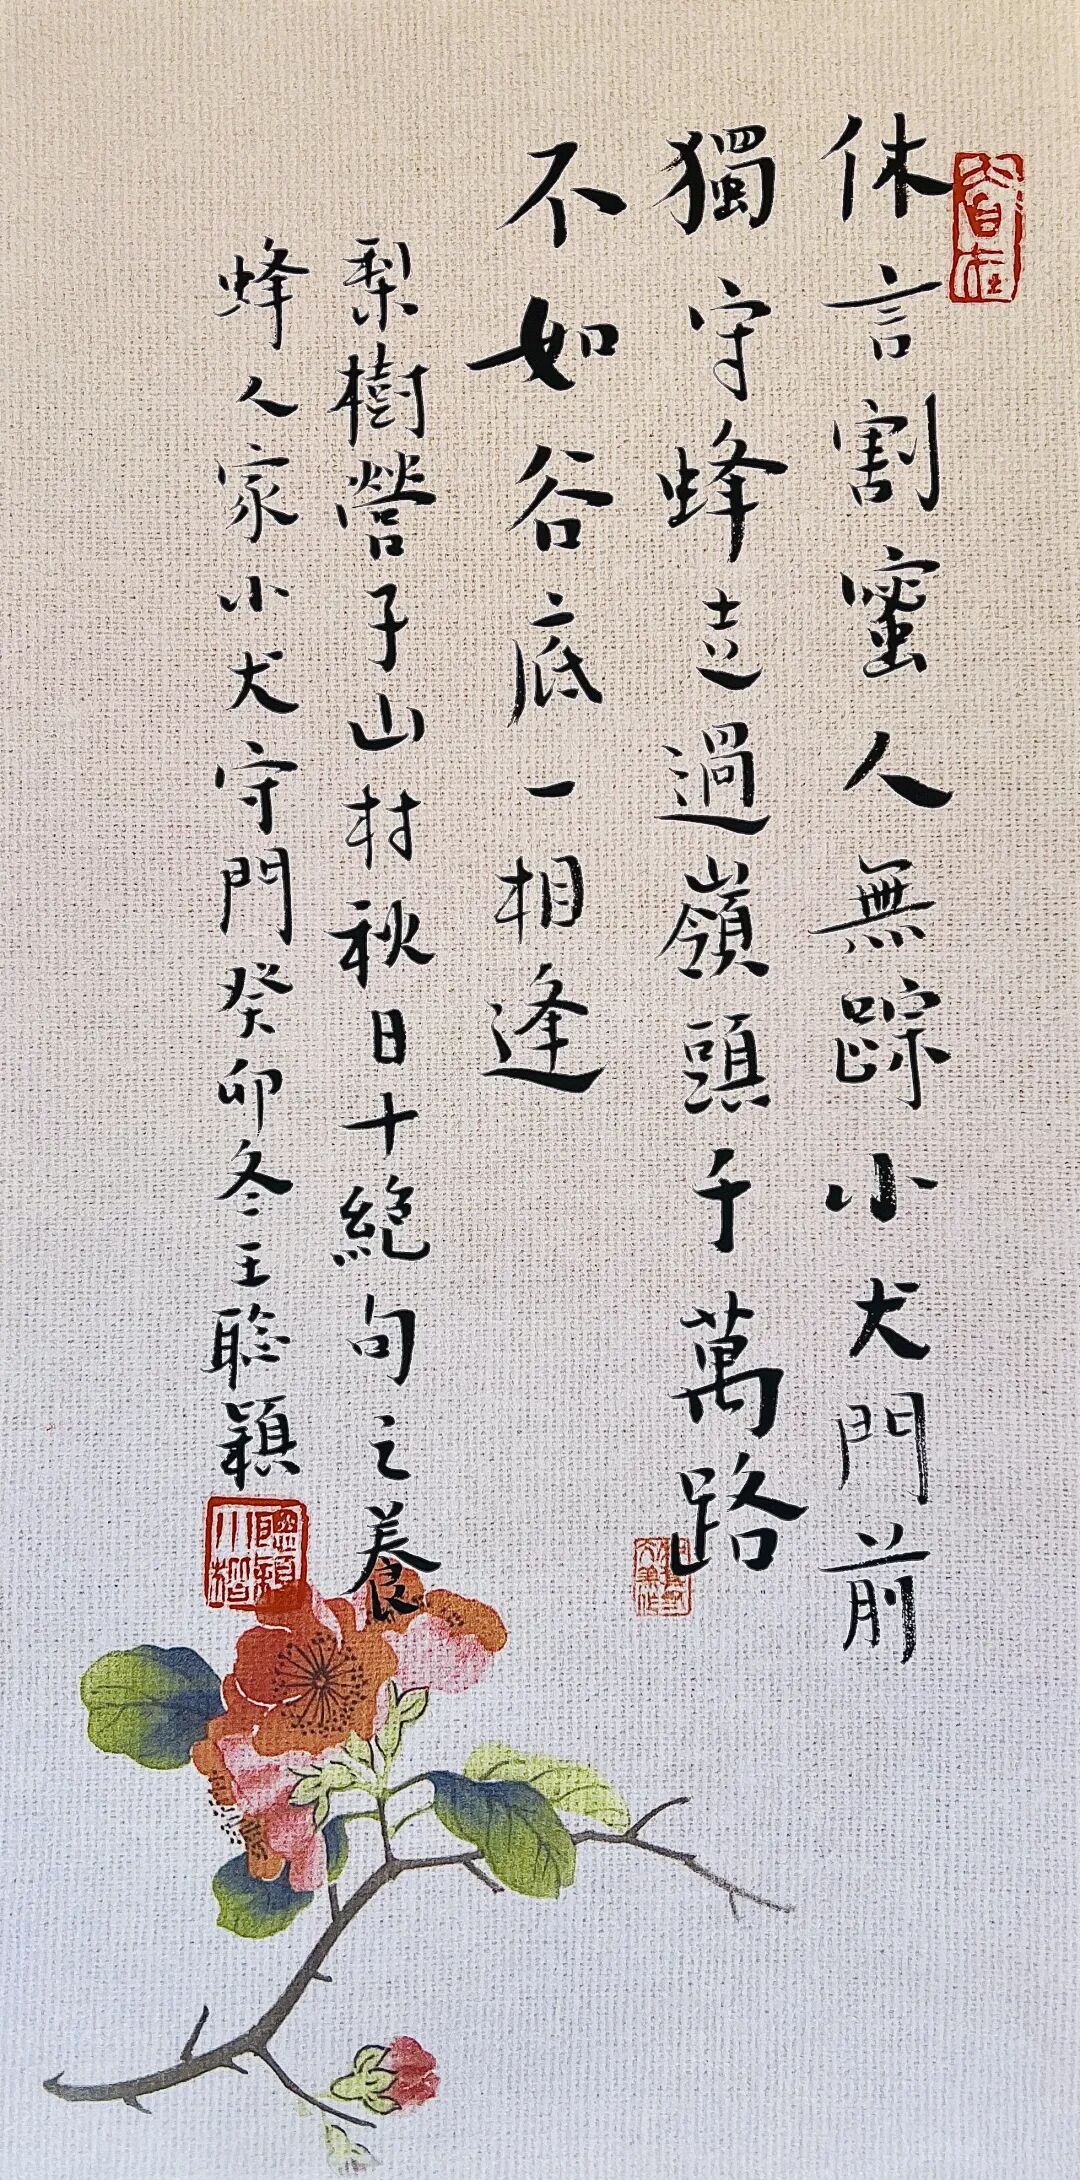 休言割蜜人無踪小犬門前
獨守蜂走過嶺頭千萬路
不如谷底一相逢
梨樹營子山村秋日十絶句之養
蜂人家小犬守門癸卯冬王聡穎